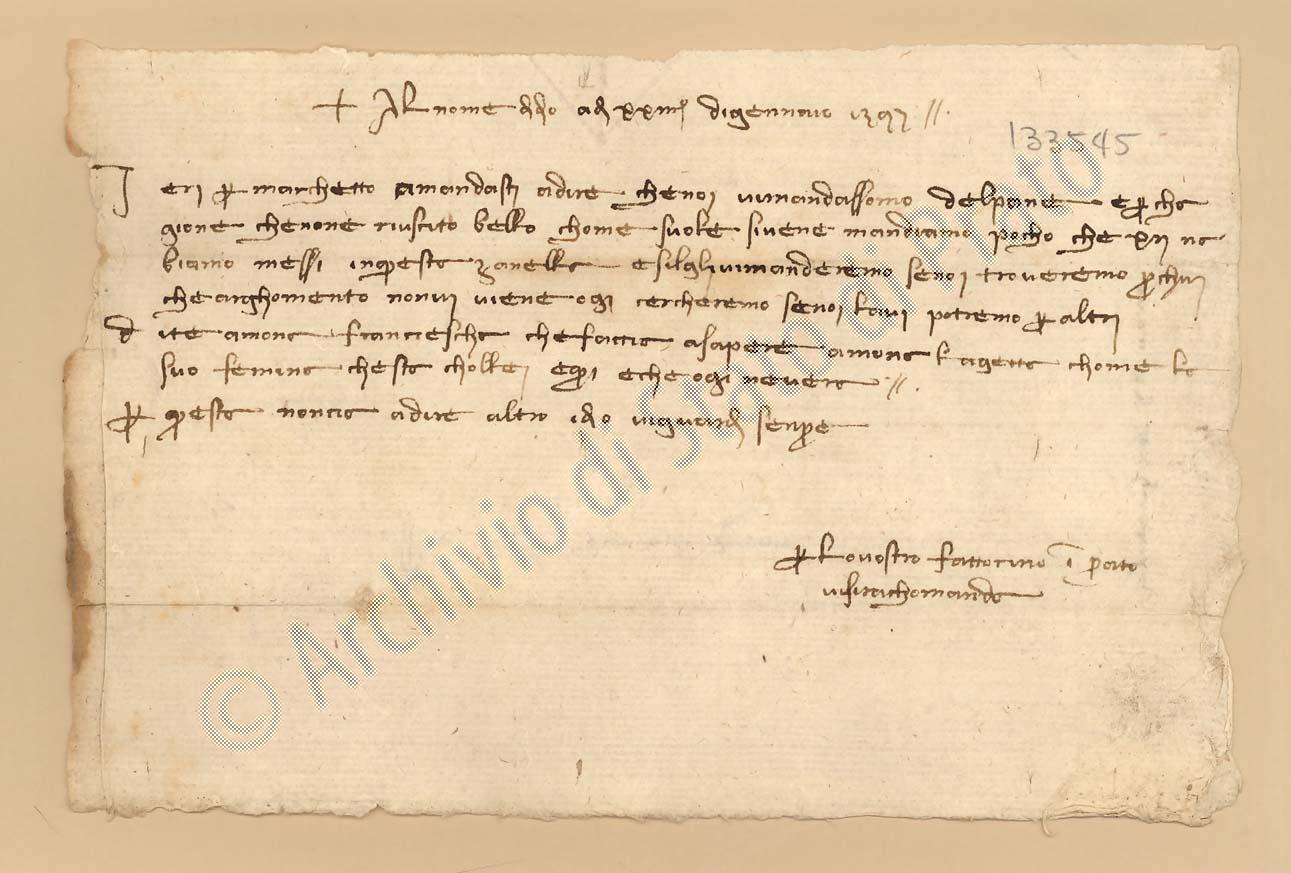 + Al nome di dio adi xxiiij di gennaio 1397 //.
133545
Ieri per marchetto amandasti adire chenoi vimandassomo delpane e per cha
gione chenone riuscito bello chome suole sivene mandiamo pocho che xii na
biamo messi inquesta zanella esilglivimanderemo senoi troveremo per chui
che arghomento nonvi viene ogi cercheremo senoi lavi potremo per altri
dite a mona franciescha che faccia asapere a mona lagetta chome la
sua femina chesta cholle e qui eche ogi nevera //.
per questa noncia adire altro idio viguardi senpre
per lo vostro fattorino in prato
visirachomanda
© Archivio di Stato di Prato